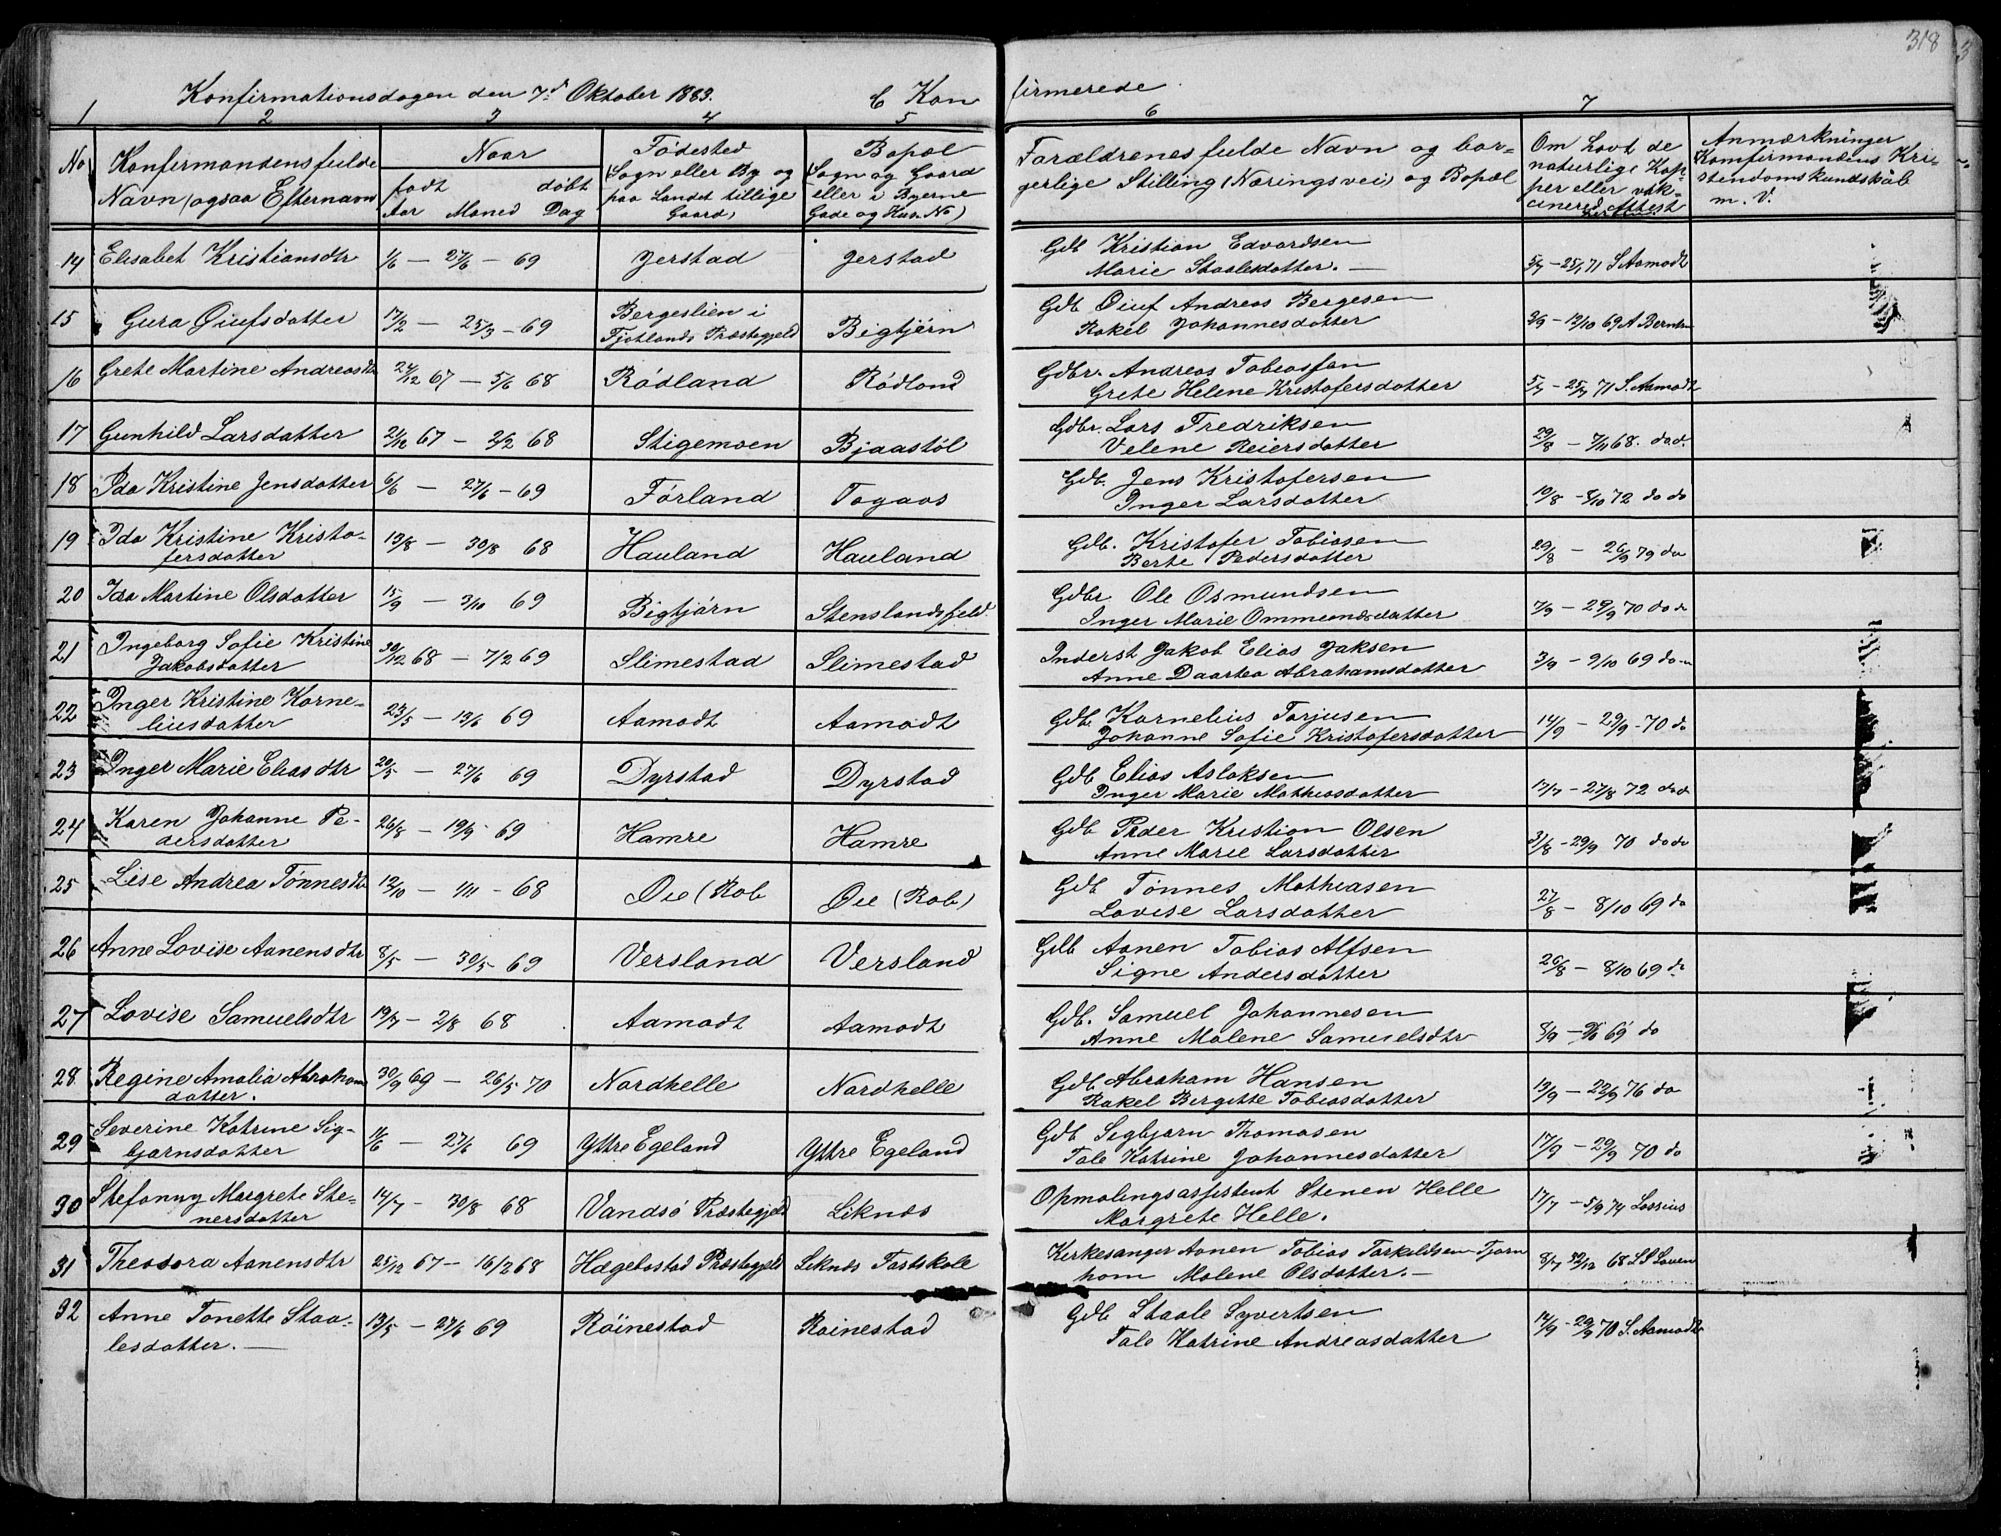 318
Konfirmationsdagen den 7d Oktober 1883. C Konfirmerede.
1 2 3 4 5 6 7
No Konfirmandens fulde Navn (ogsaa Efternavn) Naar født døbt Aar Maned Dag Fødested (Sogn eller By og paa Landet tillige Gaard) Bopæl (Sogn og Gaard eller i Byerne Gade og Hus No) Forældrenes fulde Navn og borgerlige Stilling (Næringsvei) og Bopæl Om havt de naturlige Kopper eller vakcinered Attest Anmærkninger Komfirmandens Kristendomskundskab m. V.
14 Elisabet Kristiansdtr 1/6 — 27/6 — 69 Jerstad Jerstad Gdb Kristian Edvardsen
Marie Staalesdatter. — 5/7 — 25/7 71 S Aamodt
15 Gura Øiufsdatter 17/2 — 25/3 — 69 Bergeslien i Fjotlands Præstegjeld Bigtjörn Gdb Øiuf Andreas Bergesen
Rakel Johannesdatter 12/10 69 A Berntsen
16 Grete Martine Andreasdtr 24/12 67 — 5/6 68 Rödland Rödland Gdbr. Andreas Tobiassen
Grete Helene Kristofersdatter 5/7 — 25/7 71 S. Aamodt
17 Gunhild Larsdatter 21/12 67 — 2/2 68 Stigemoen Bjaastöl Gdbr. Lars Fredriksen
Velene Reiersdatter 29/8 — 7/11 68. do do.
18 Ida Kristine Jensdatter 6/6 — 27/6 — 69 Förland Togaas Gdb. Jens Kristofersen
Inger Larsdatter 10/8 — 8/10 72 do do
19 Ida Kristine Kristofersdatter 13/8 — 30/8 68 Hauland Hauland Gdb. Kristofer Tobiasen
Berte Pedersdatter 29/8 — 26/9 79 do
20 Ida Martine Olsdatter 15/9 — 3/10 69 Bigtjörn Stenslandsfjeld Gdbr Ole Osmundsen
Inger Marie Ommundsdatter 7/9 — 29/9 70 do do
21 Ingeborg Sofie Kristine Jakobsdatter 30/12 68 — 7/2 69 Slimestad Slimestad Inderst Jakob Elias Jaksen
Anne Daartea Abrahamsdatter 3/9 — 9/10 69 do
22 Inger Kristine Korneliusdatter 23/5 — 13/6 69 Aamodt Aamodt Gdb. Kornelius Torjusen
Johanne Sofie Kristofersdatter 14/9 — 29/9 — 70 do
23 Inger Marie Eliasdtr 20/5 — 27/6 69 Dyrstad Dyrstad Gdb Elias Aslaksen
Inger Marie Mathiasdatter 17/7 — 27/8 72 do do
24 Karen Johanne Pedersdatter 26/8 — 19/9 69 Hamre Hamre Gdb Peder Kristian Olsen
Anne Marie Larsdatter 31/8 — 29/9 70 do do
25 Lise Andrea Tönnesdtr 12/10 — 1/11 — 68 Øie (Rob Øie (Rob) Gdb Tönnes Mathiasen
Lovise Larsdatter 27/8 — 8/10 69 do
26 Anne Lovise Aanensdtr 8/5 — 30/5 69 Versland Versland Gdb Aanen Tobias Alfsen
Signe Andersdatter 26/8 — 8/10 69 do
27 Lovise Samuelsdtr 19/7 — 2/8 68 Aamodt Aamodt Gdb. Samuel Johannesen
Anne Malene Samuelsdtr 8/9 — 69 do
28 Regine Amalia Abrahamdatter. 30/9 69 — 26/5 70 Nordhelle Nordhelle Gdb Abraham Hansen
Rakel Bergitte Tobiasdatter 13/9 — 22/9 76 do
29 Severine Katrine Sigbjørnsdatter 11/6 — 27/6 69 Yttre Egeland Yttre Egeland Gdb Sigbjørn Thomasen
Tale Katrine Johannesdatter 17/9 — 29/9 70 do
30 Stefanny Margrete Stenersdatter 14/7 — 30/8 68 Vandsö Præstegjeld Liknes Opmalingsassistent Stenen Helle
Margrete Helle. 17/7 — 5/9 74 Lassius
31 Theodora Aanensdtr 25/12 67 — 16/2 68 Hægebostad Præstegjeld Liknes Fastskole Kirkesanger Aanen Tobias Tarkeldsen Tjomhom Malene Olsdatter. — 8/7 68 L S Loven
32 Anne Tonette Staalesdatter. — 13/5 — 27/6 69 Röinestad Roinestad Gdb Staale Syvertsen
Tale Katrine Andreasdatter 14/9 — 29/9 70 S. Aamodt